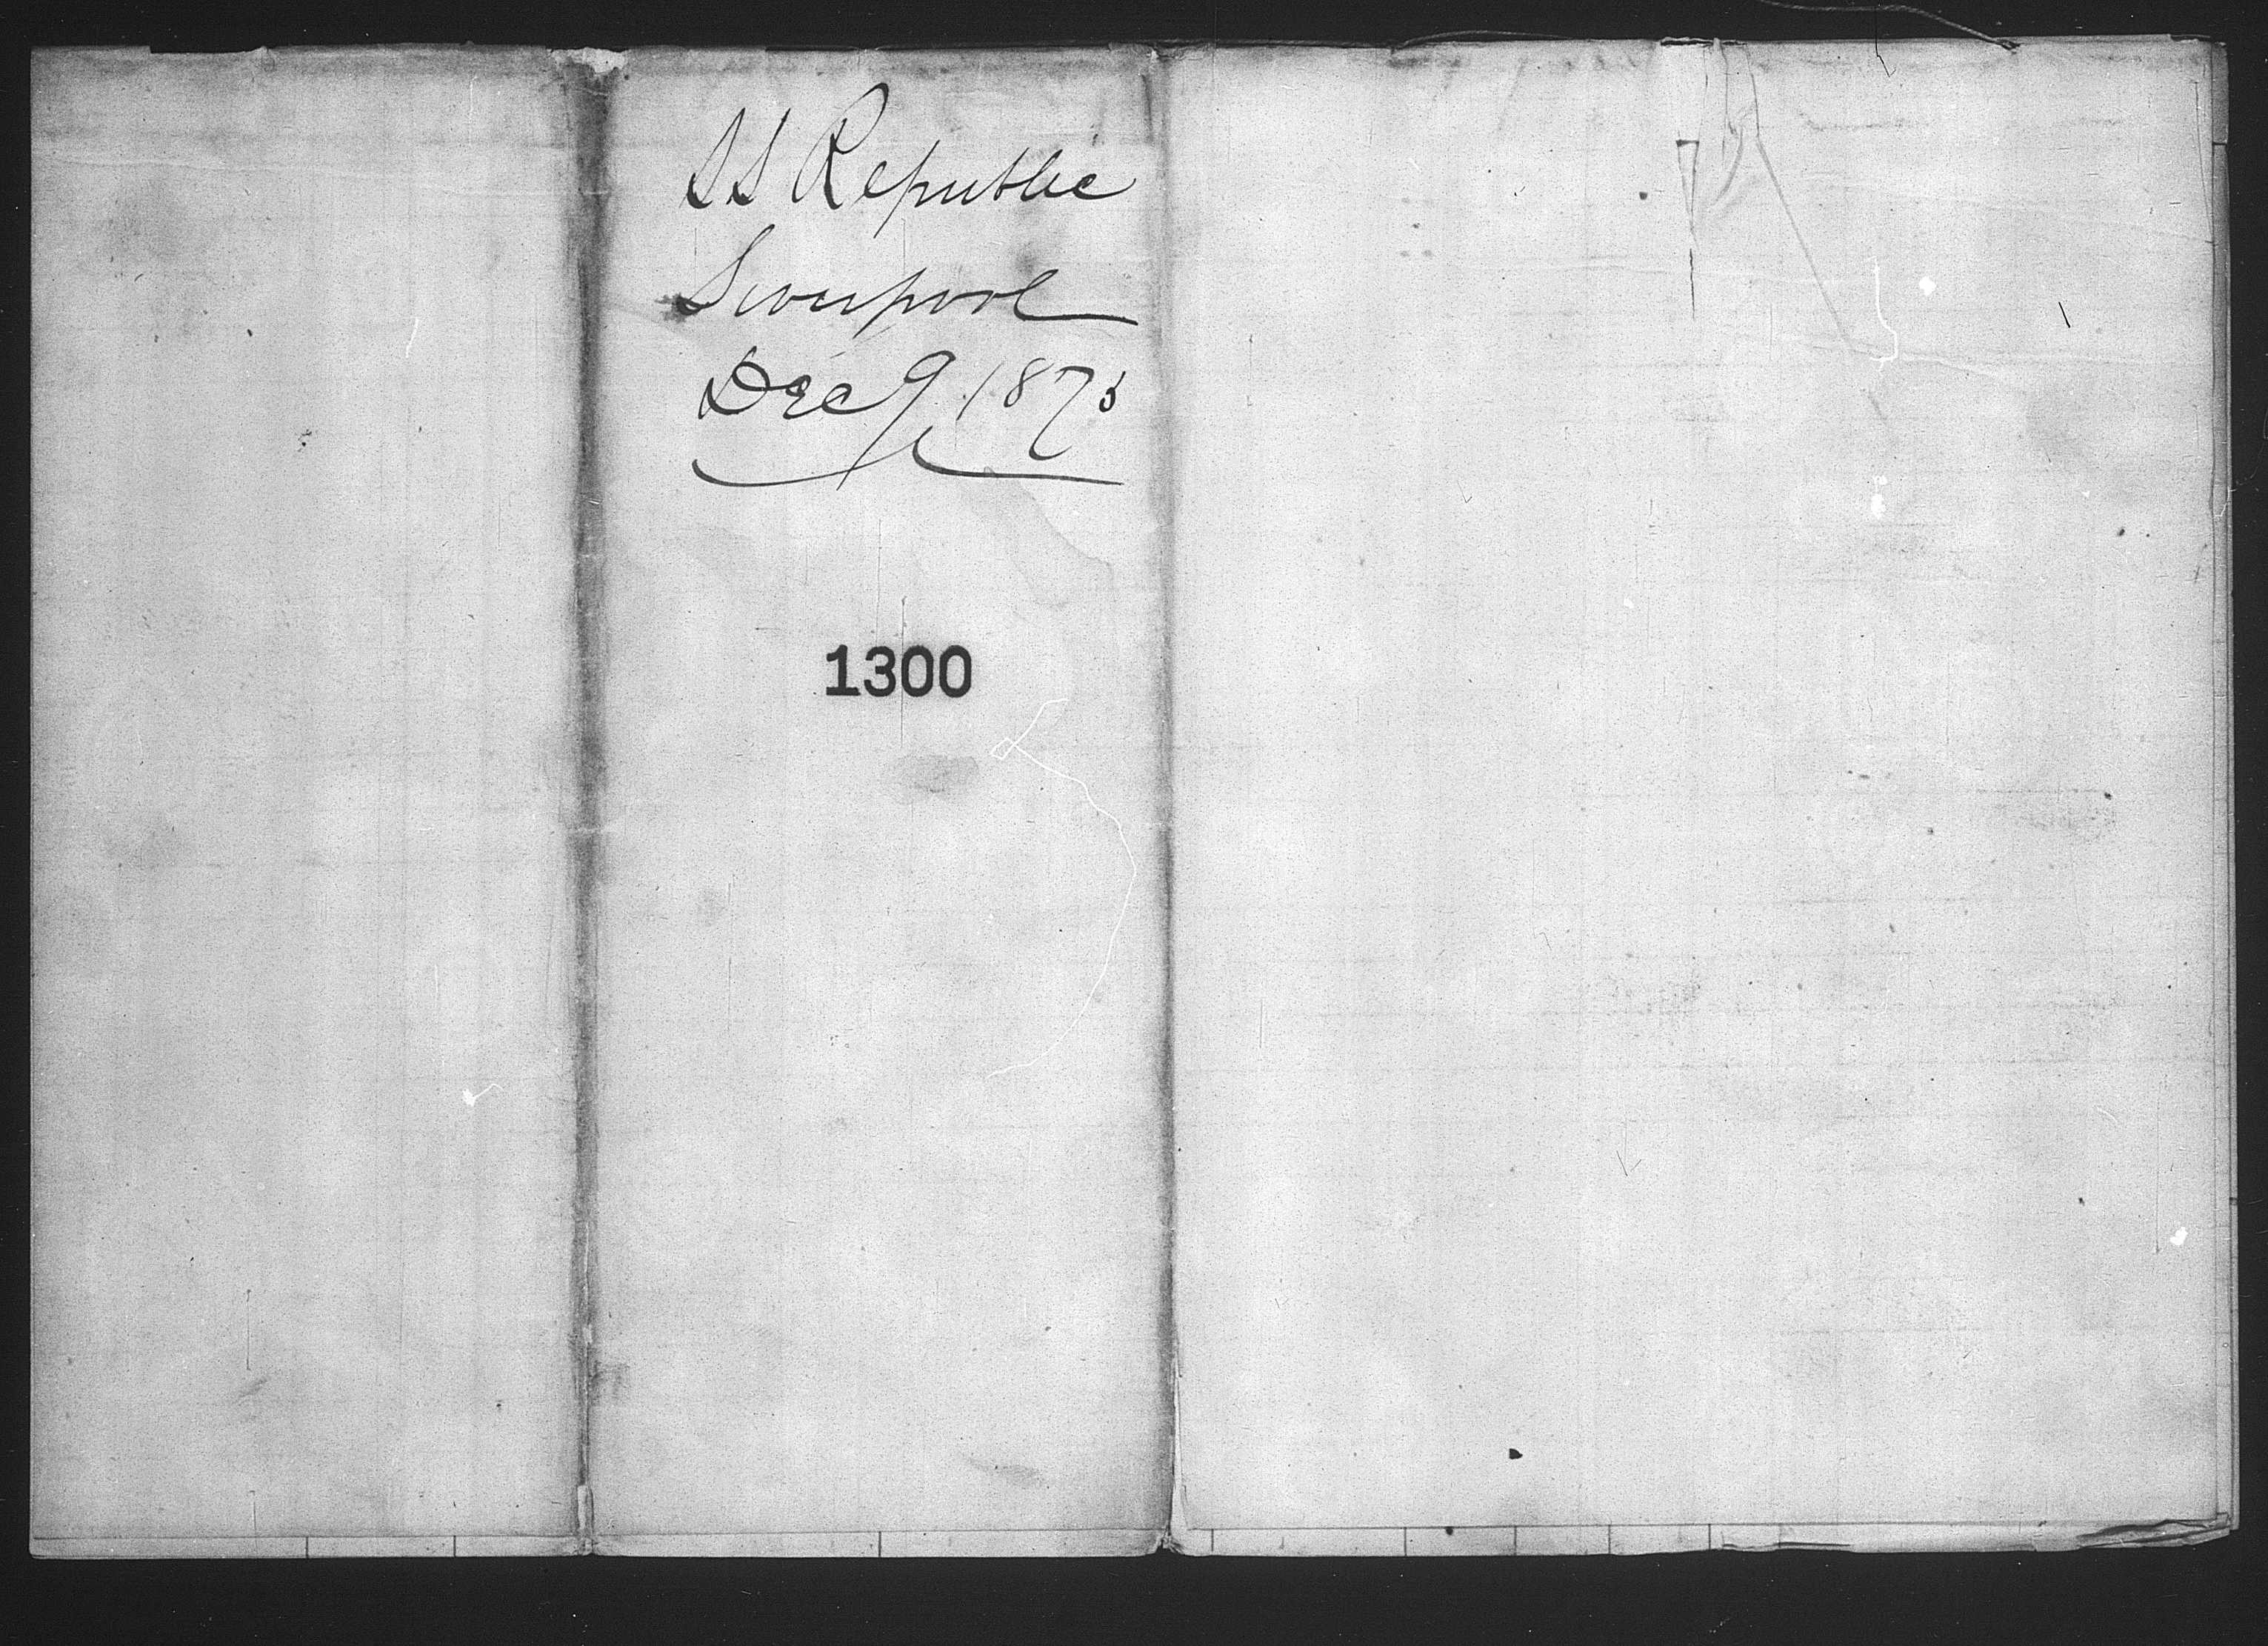 SS Republic
Liverpool
Dec 9 1873
1300